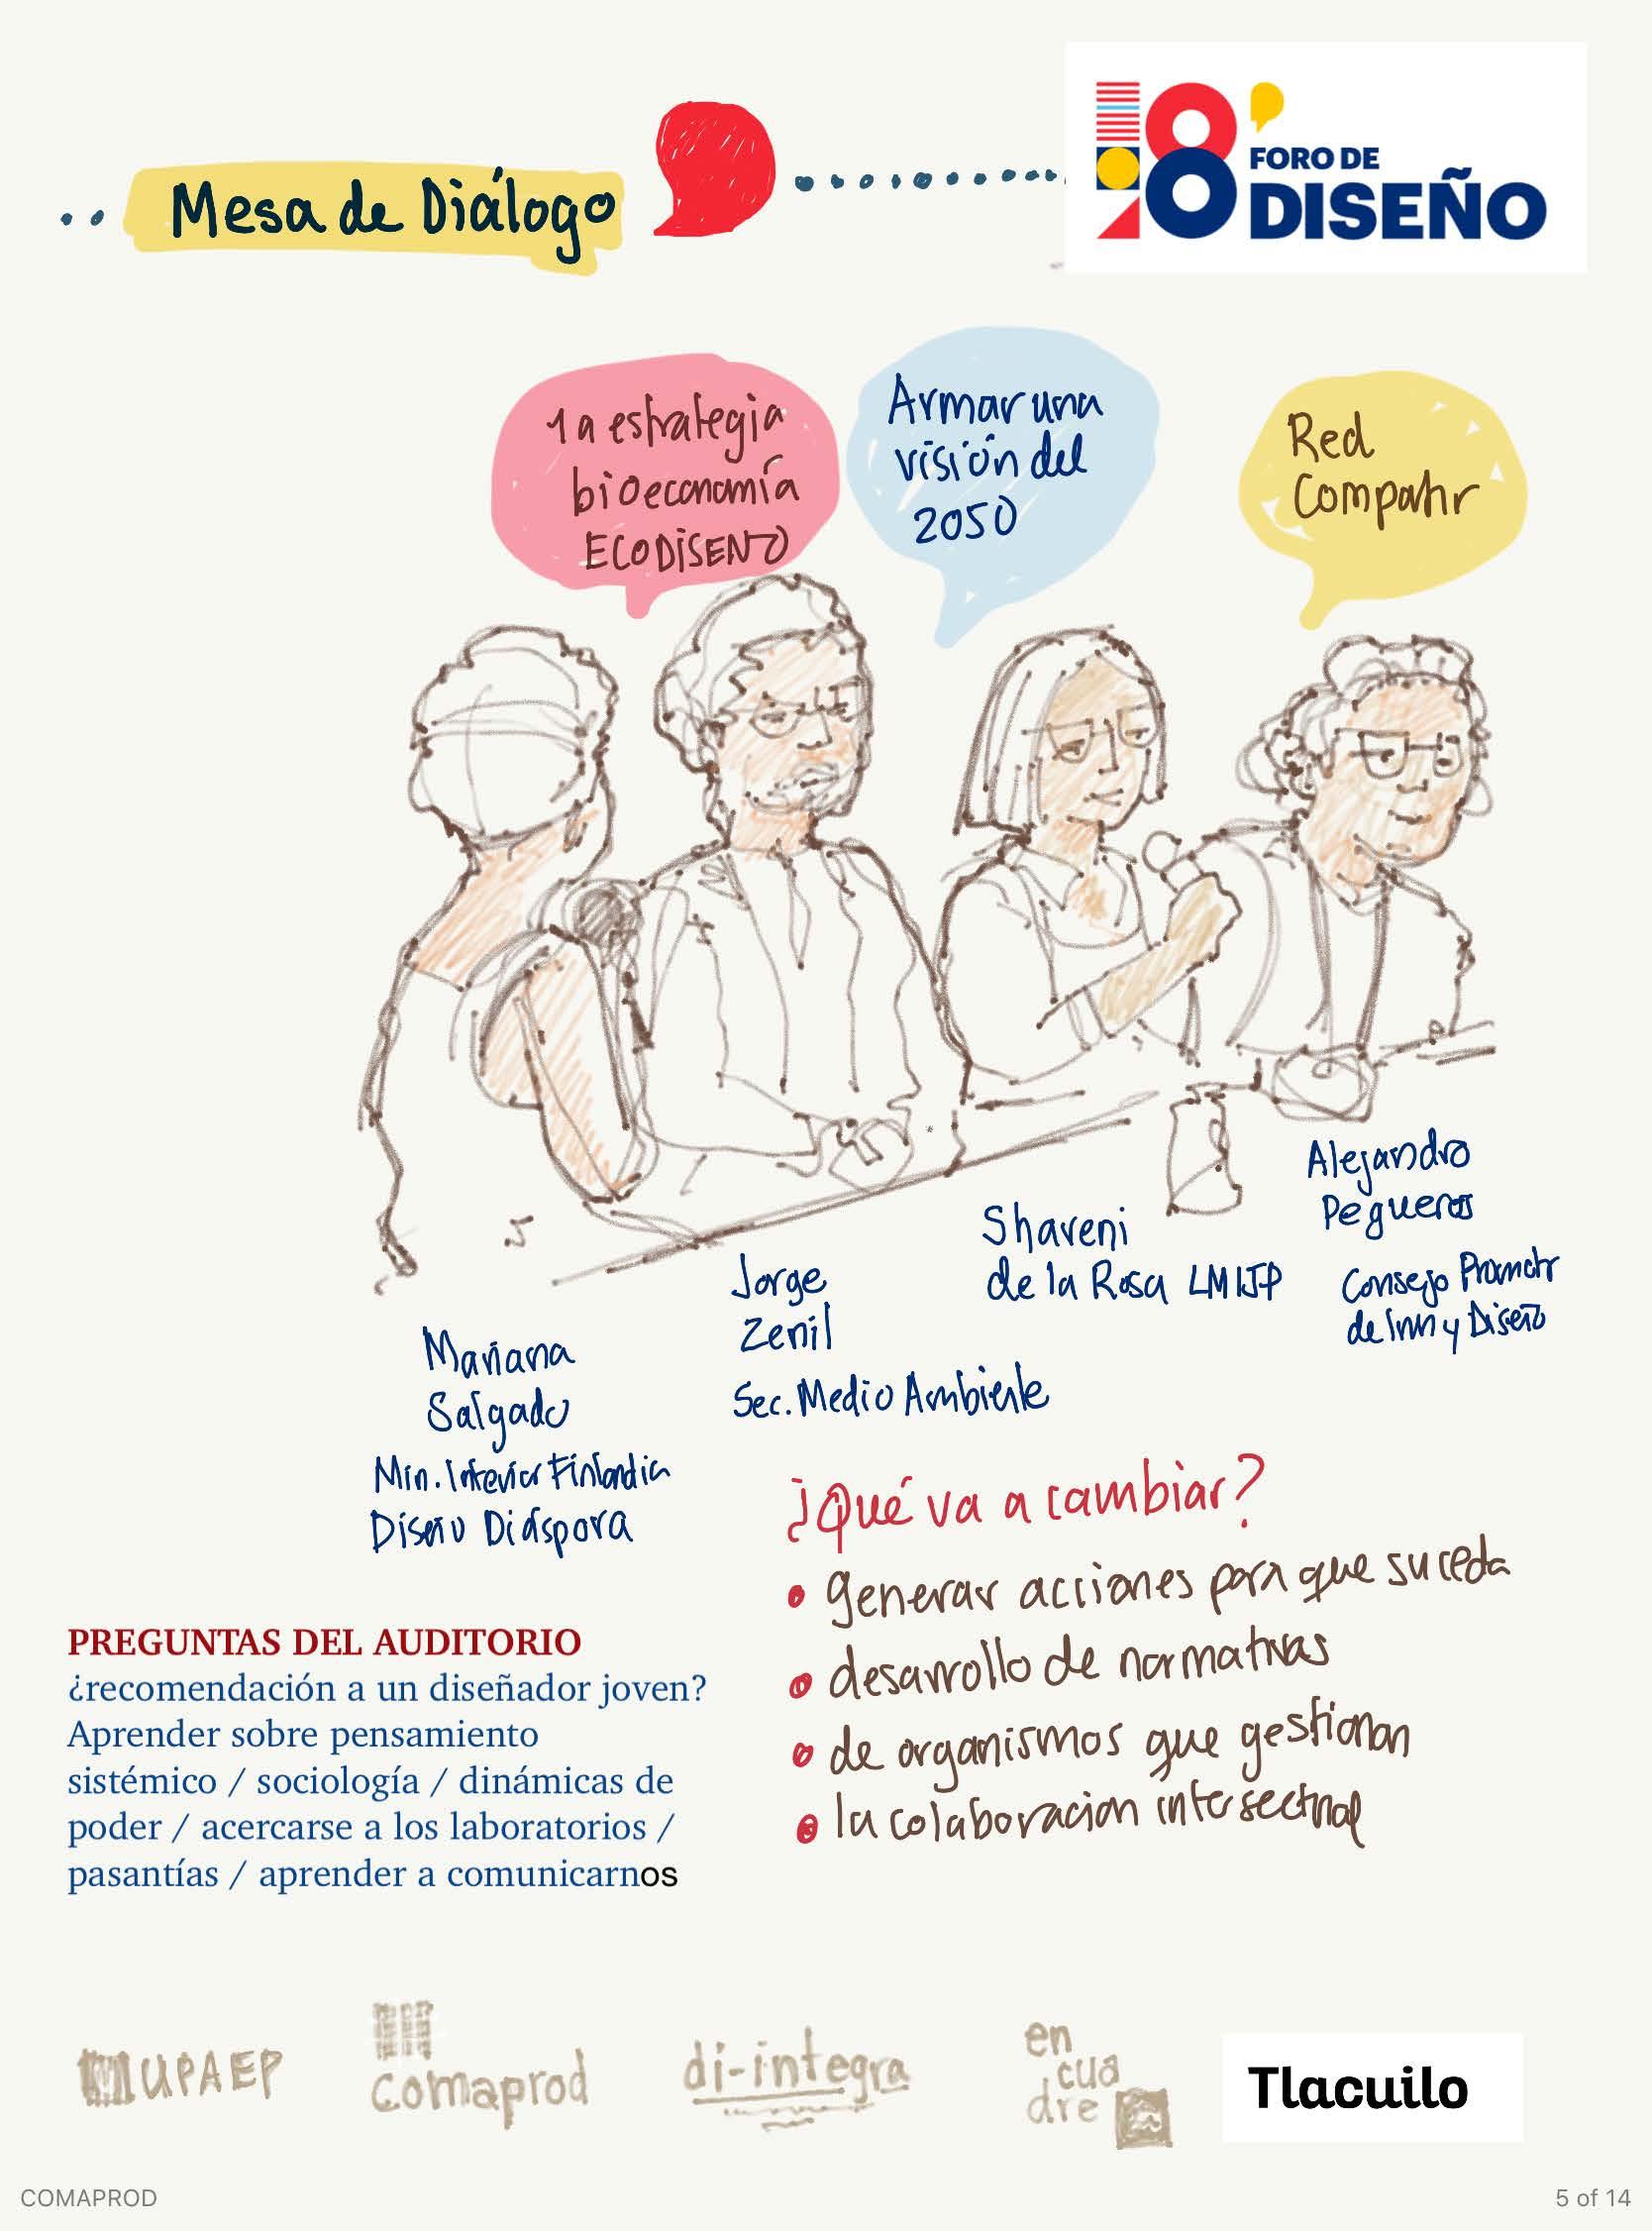 Mesa de Diálogo
18'
FORO DE
DISEÑO
1a estrategia
bioeconomía
ECODISEÑO
Armar una
visión del
2050
Red
Compartir
Alejandro
Pegueros
Consejo Promotr
de Inn y Diseño
Shareni
de la Rosa LMIJP
Jorge
Zenil
Sec. Medio Ambiente
Mariana
Salgado
Min. Interior Finlandia
Diseño Diáspora
¿Qué va a cambiar?
• generar acciones para que suceda
• desarrollo de normativas
• de organismos que gestionan
• la colaboracion intersectrial
PREGUNTAS DEL AUDITORIO
¿recomendación a un diseñador joven?
Aprender sobre pensamiento
sistémico / sociología / dinámicas de
poder / acercarse a los laboratorios /
pasantías / aprender a comunicarnos
UPAEP
Comaprod
di-integra
en
cua
dre
Tlacuilo
COMAPROD
5 of 14